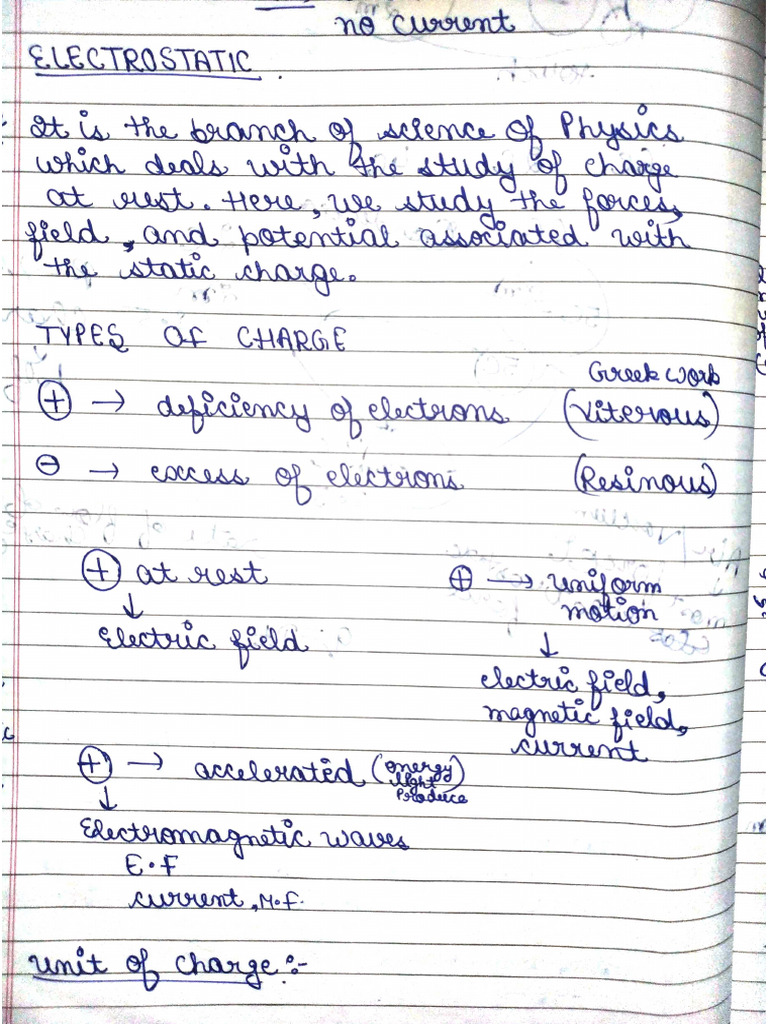 no current
ELECTROSTATIC.
It is the branch of science of Physics
which deals with the study of charge
at rest. Here, we study the forces,
field, and potential associated with
the static charge.
TYPES OF CHARGE
Greek work
⊕ → deficiency of electrons (Viterous)
⊖ → excess of electrons (Resinous)
⊕ at rest
↓
Electric field
⊕ → uniform
motion
↓
electric field,
magnetic field,
current
⊕ → accelerated (energy
light
Produce)
↓
Electromagnetic waves
E.F
current, M.F.
unit of charge :-